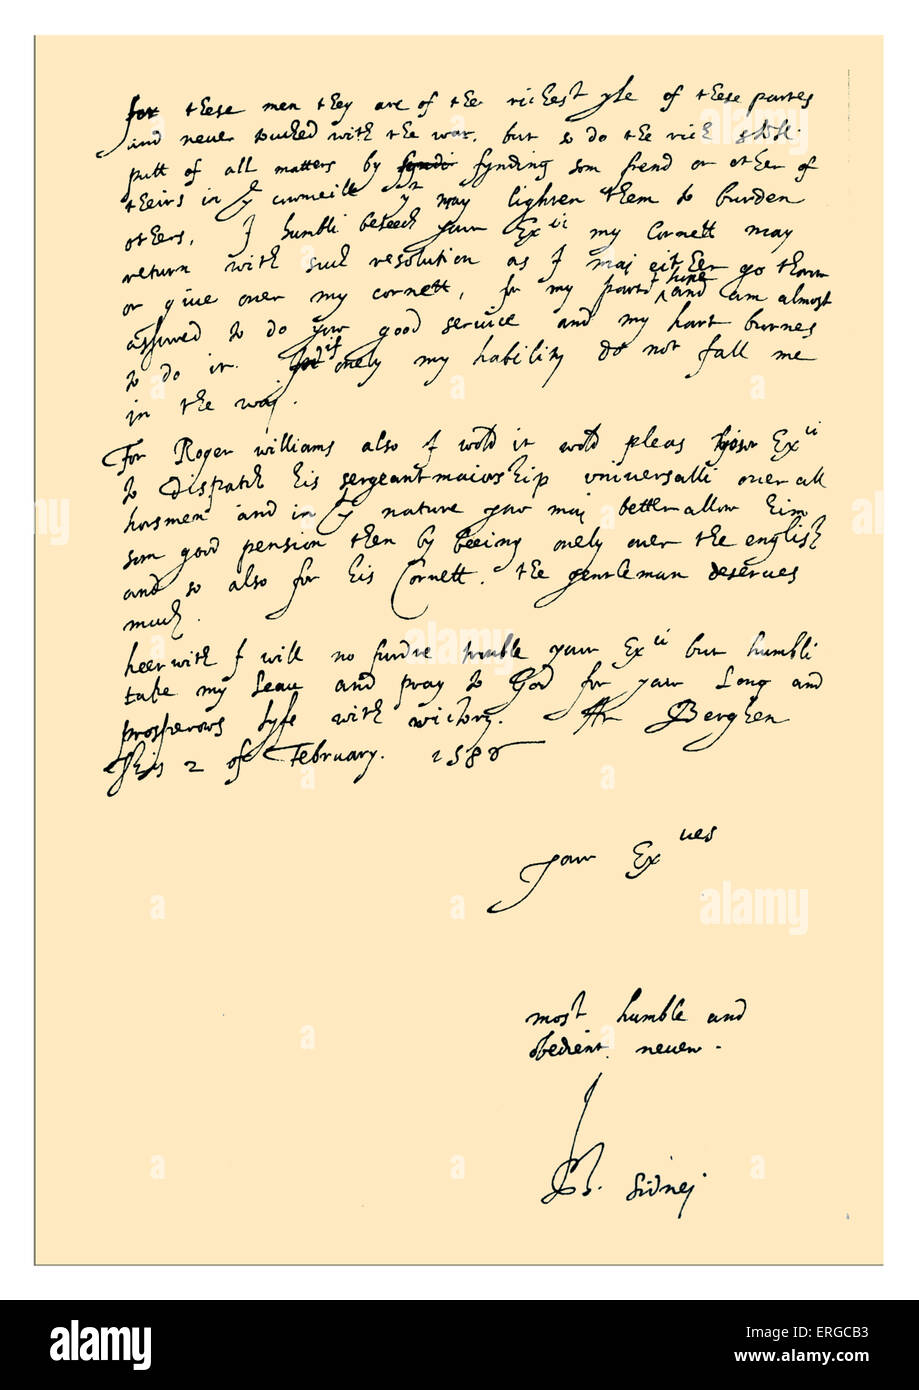 for these men they are of the richest yle of these partes
and never touched with the war. but so do the rich stil
putt of all matters by fyndi fynding som frend or other of
theirs in yᵉ cowncill yᵗ may lighten them to burden
others. I humbli beseech yowr Exⁱⁱ my Cornett may
return with such resolution as I maj either go thorow
or give over my cornett, for my part I have and am almost
assured to do yow good service and my hart burnes
to do it. if onely my hability do not fall me
in the waj.
For Roger williams also I wold it wold pleas yowr Exⁱⁱ
to dispatch his sergeantmaiorship universalli over all
horsmen and in yᵗ nature yow maj better allow him
som good pension then by beeing onely over the english
and so also for his Cornett. the gentleman deserves
much.
heerwith I will no furdre trouble yowr Exⁱⁱ but humbli
take my leau and pray to God for yowr Long and
prosperows lyfe with victory. At Berghen
this 2 of February. 1586
Yowr Exᵘᵉˢ
most humble and
obedient neuew.
Ph. Sidnej
alamy
Image ID: ERGCB3
www.alamy.com